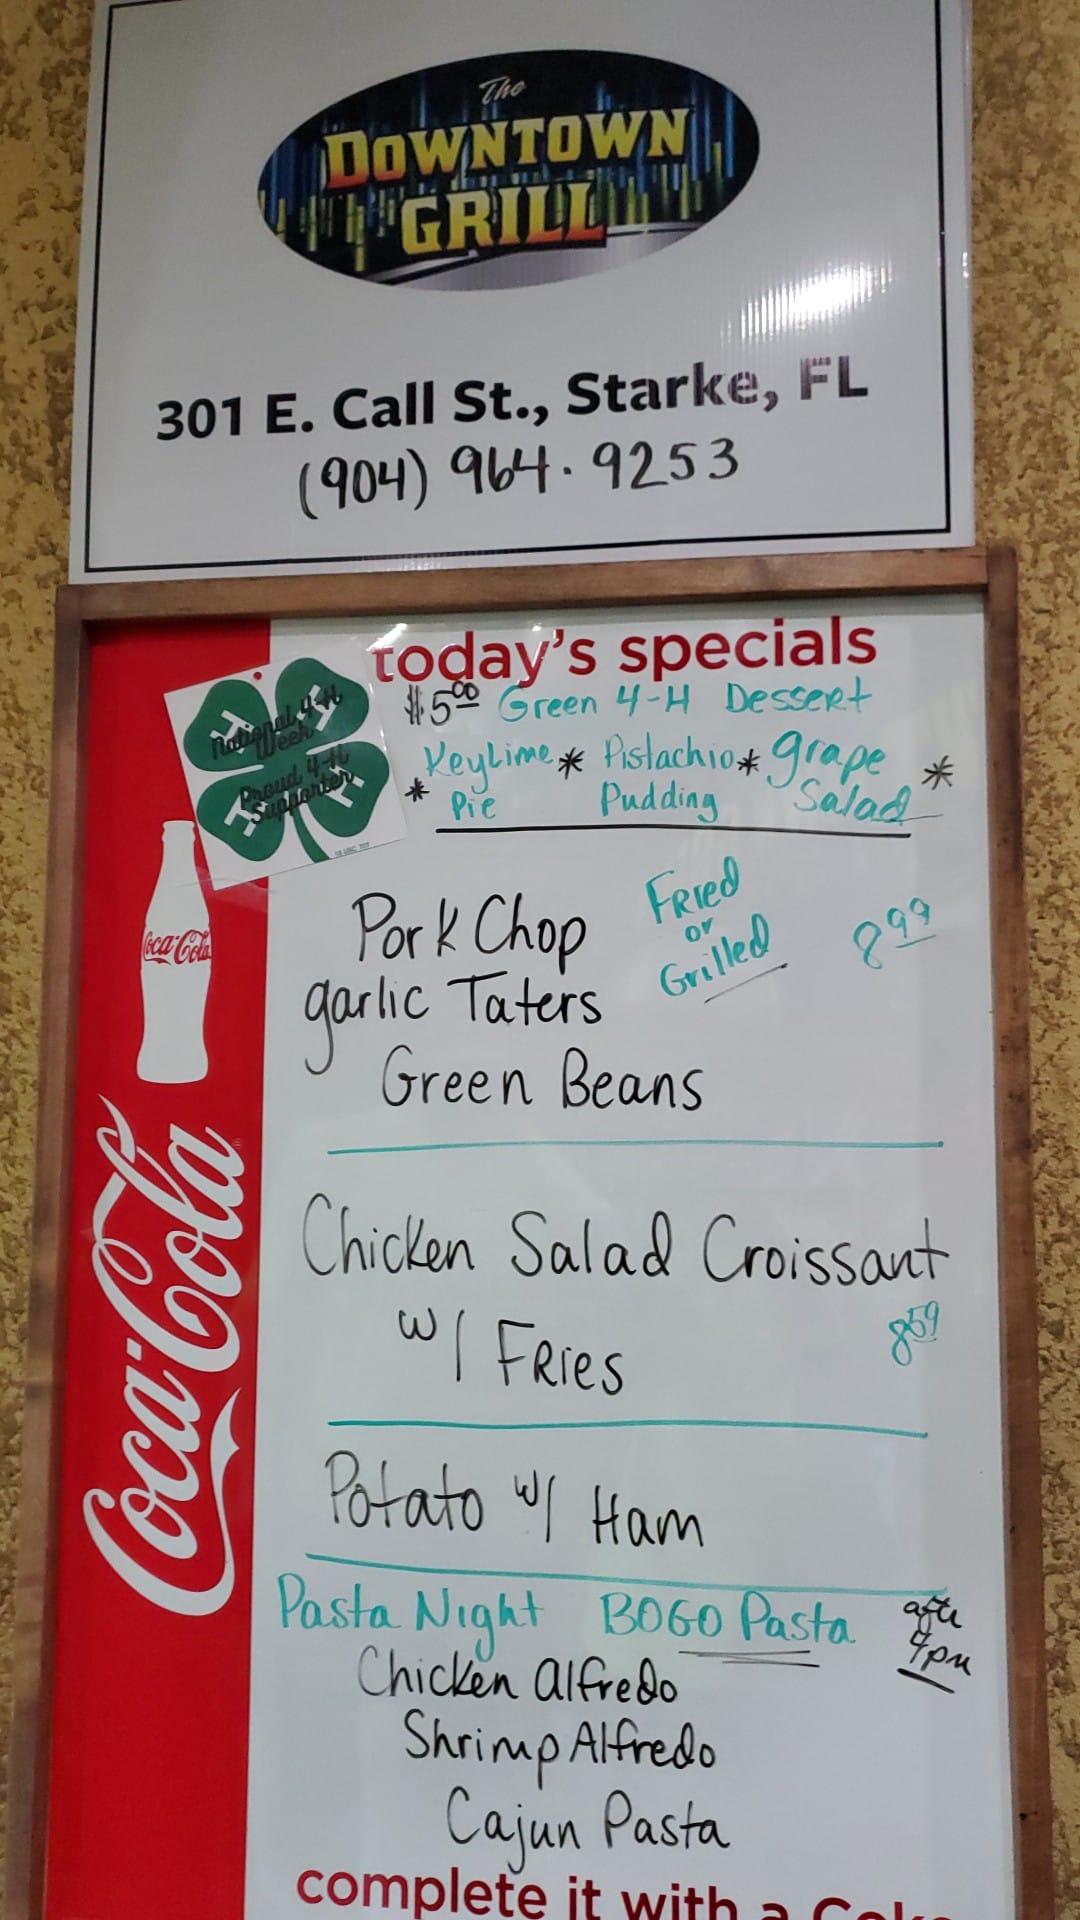 The
DOWNTOWN
GRILL
301 E. Call St., Starke, FL
(904) 964.9253
today's specials
$5.00 Green 4-H Dessert
* KeyLime * Pistachio * grape *
Pie Pudding Salad
National 4-H
Week
Proud 4-H
Supporter
H H
H H
Pork Chop Fried
or
Grilled 8.99
garlic Taters
Green Beans
Coca-Cola
Coca-Cola
Chicken Salad Croissant
w/ Fries 8.59
Potato w/ Ham
Pasta Night BOGO Pasta after
4pm
Chicken Alfredo
Shrimp Alfredo
Cajun Pasta
complete it with a Coke